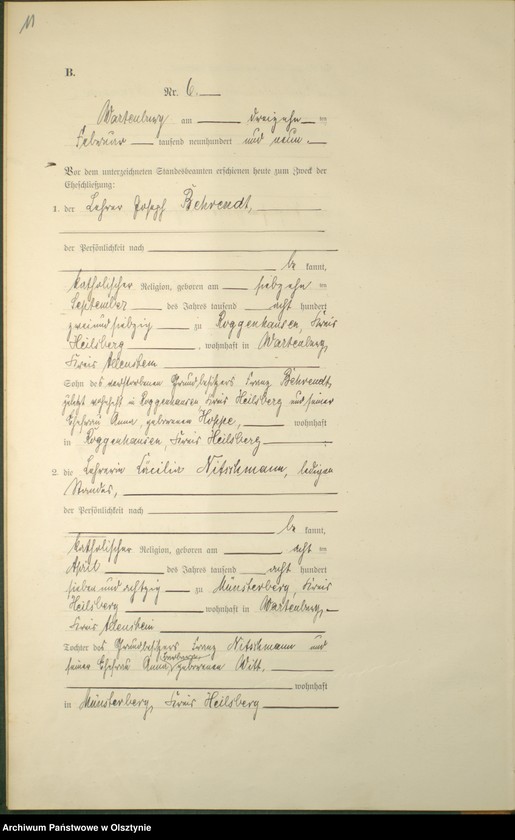 11
B.
Nr. 6.
Wartenburg am dreizehn
Februar tausend neunhundert und neun.
Vor dem unterzeichneten Standesbeamten erschienen heute zum Zweck der
Eheschließung:
1. der Lehrer Joseph Behrendt,
der Persönlichkeit nach
be kannt,
katholischer Religion, geboren am siebzehn
September des Jahres tausend acht hundert
zweiundsiebzig zu Roggenhausen, Kreis
Heilsberg, wohnhaft in Wartenburg,
Kreis Allenstein
Sohn des verstorbenen Grundbesitzers Franz Behrendt,
zuletzt wohnhaft in Roggenhausen Kreis Heilsberg und seiner
Ehefrau Anna, geborenen Hoppe, wohnhaft
in Roggenhausen, Kreis Heilsberg
2. die Lehrerin Cäcilia Nitschmann, ledigen
Standes,
der Persönlichkeit nach
be kannt,
katholischer Religion, geboren am acht
April des Jahres tausend acht hundert
sieben und achtzig zu Münsterberg, Kreis
Heilsberg wohnhaft in Wartenburg,
Kreis Allenstein
Tochter des Grundbesitzers Franz Nitschmann und
seiner Ehefrau Anna, Barbara geborenen Witt.
wohnhaft
in Münsterberg, Kreis Heilsberg
Archiwum Państwowe w Olsztynie